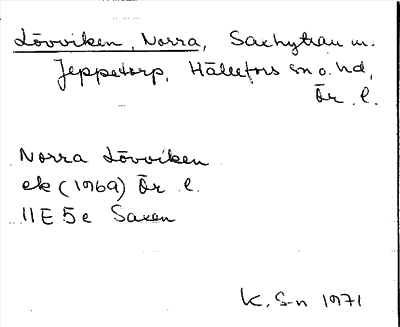 Lövviken, Norra, Saxhyttan m.
Jeppetorp, Hällefors sn o. hd,
Ör. l.
Norra Lövviken
ek (1969) Ör l.
11E 5e Saxen
K. S-n 1971